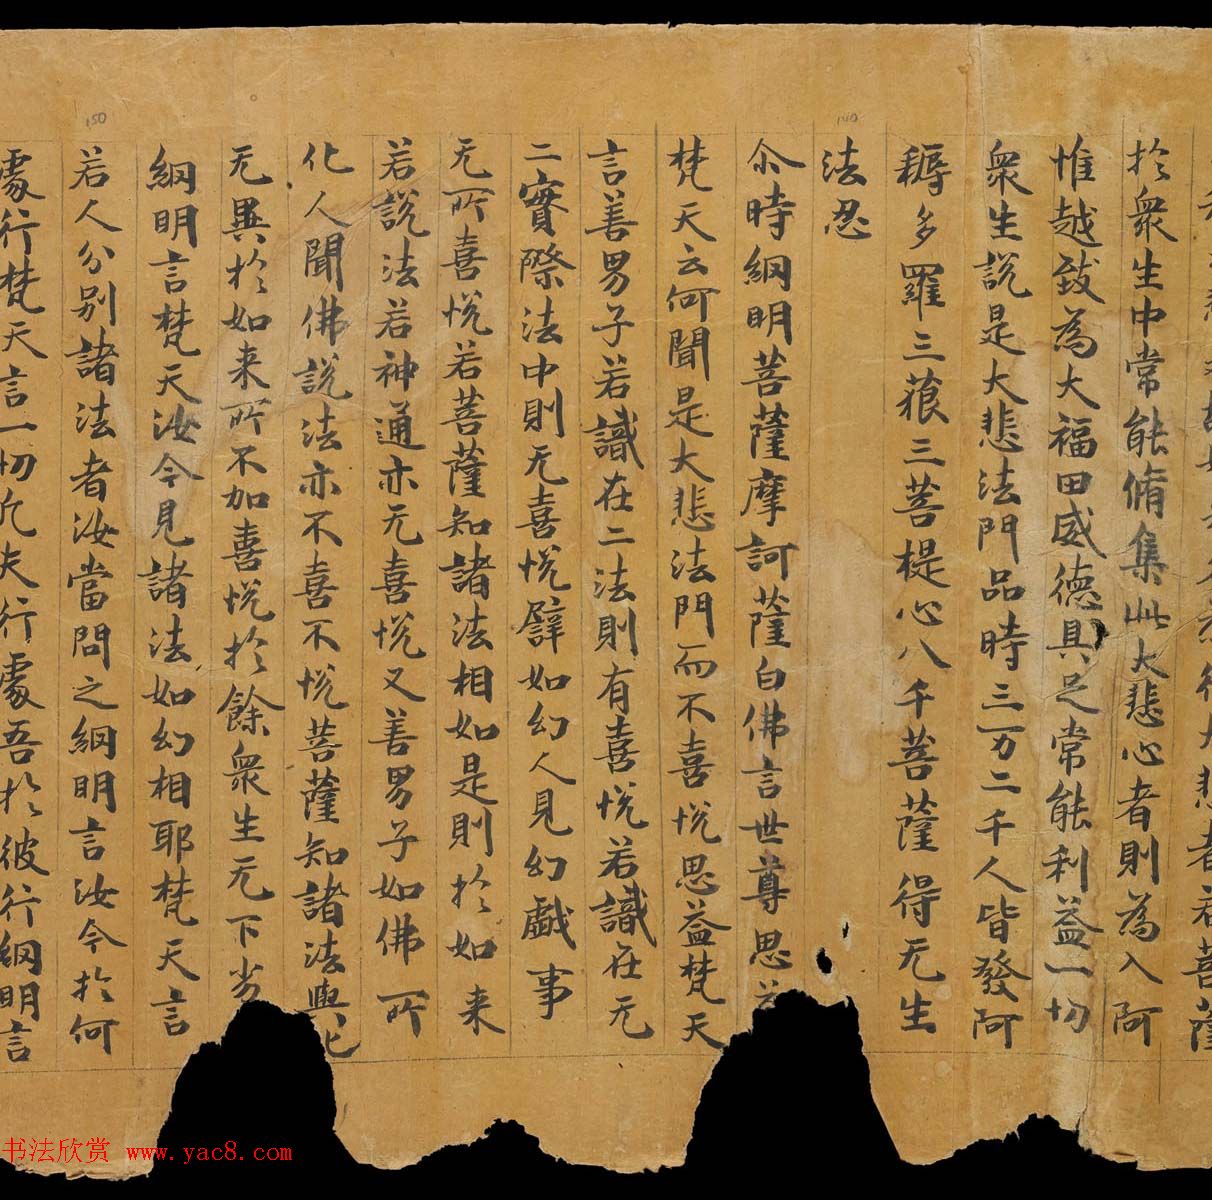 大悲者若菩薩
於衆生中常能脩集此大悲心者則為入阿
惟越致為大福田威德具足常能利益一切
衆生說是大悲法門品時三万二千人皆發阿
耨多羅三藐三菩提心八千菩薩得无生
法忍
尒時網明菩薩摩訶薩白佛言世尊思益
梵天云何聞是大悲法門而不喜悅思益梵天
言善男子若識在二法則有喜悅若識在无
二實際法中則无喜悅譬如幻人見幻戱事
无所喜悅若菩薩知諸法相如是則於如来
若說法若神通亦无喜悅又善男子如佛所
化人聞佛說法亦不喜不悅菩薩知諸法與化
无異於如来所不加喜悅於餘衆生无下劣
網明言梵天汝今見諸法如幻相耶梵天言
若人分别諸法者汝當問之網明言汝今於何
處行梵天言一切凡夫行處吾於彼行網明言
140
150
书法欣赏 www.yac8.com